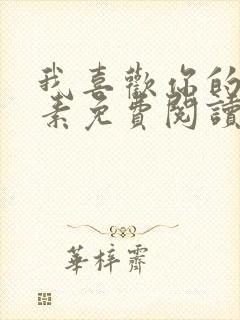 我喜歡你的
素免費閱讀
華梓霽